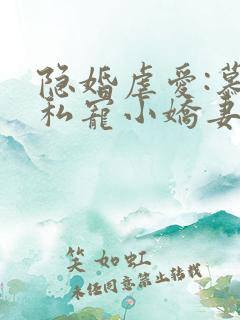 隐婚虐爱:慕
私宠小娇妻
笑如虹
未经同意禁止转载